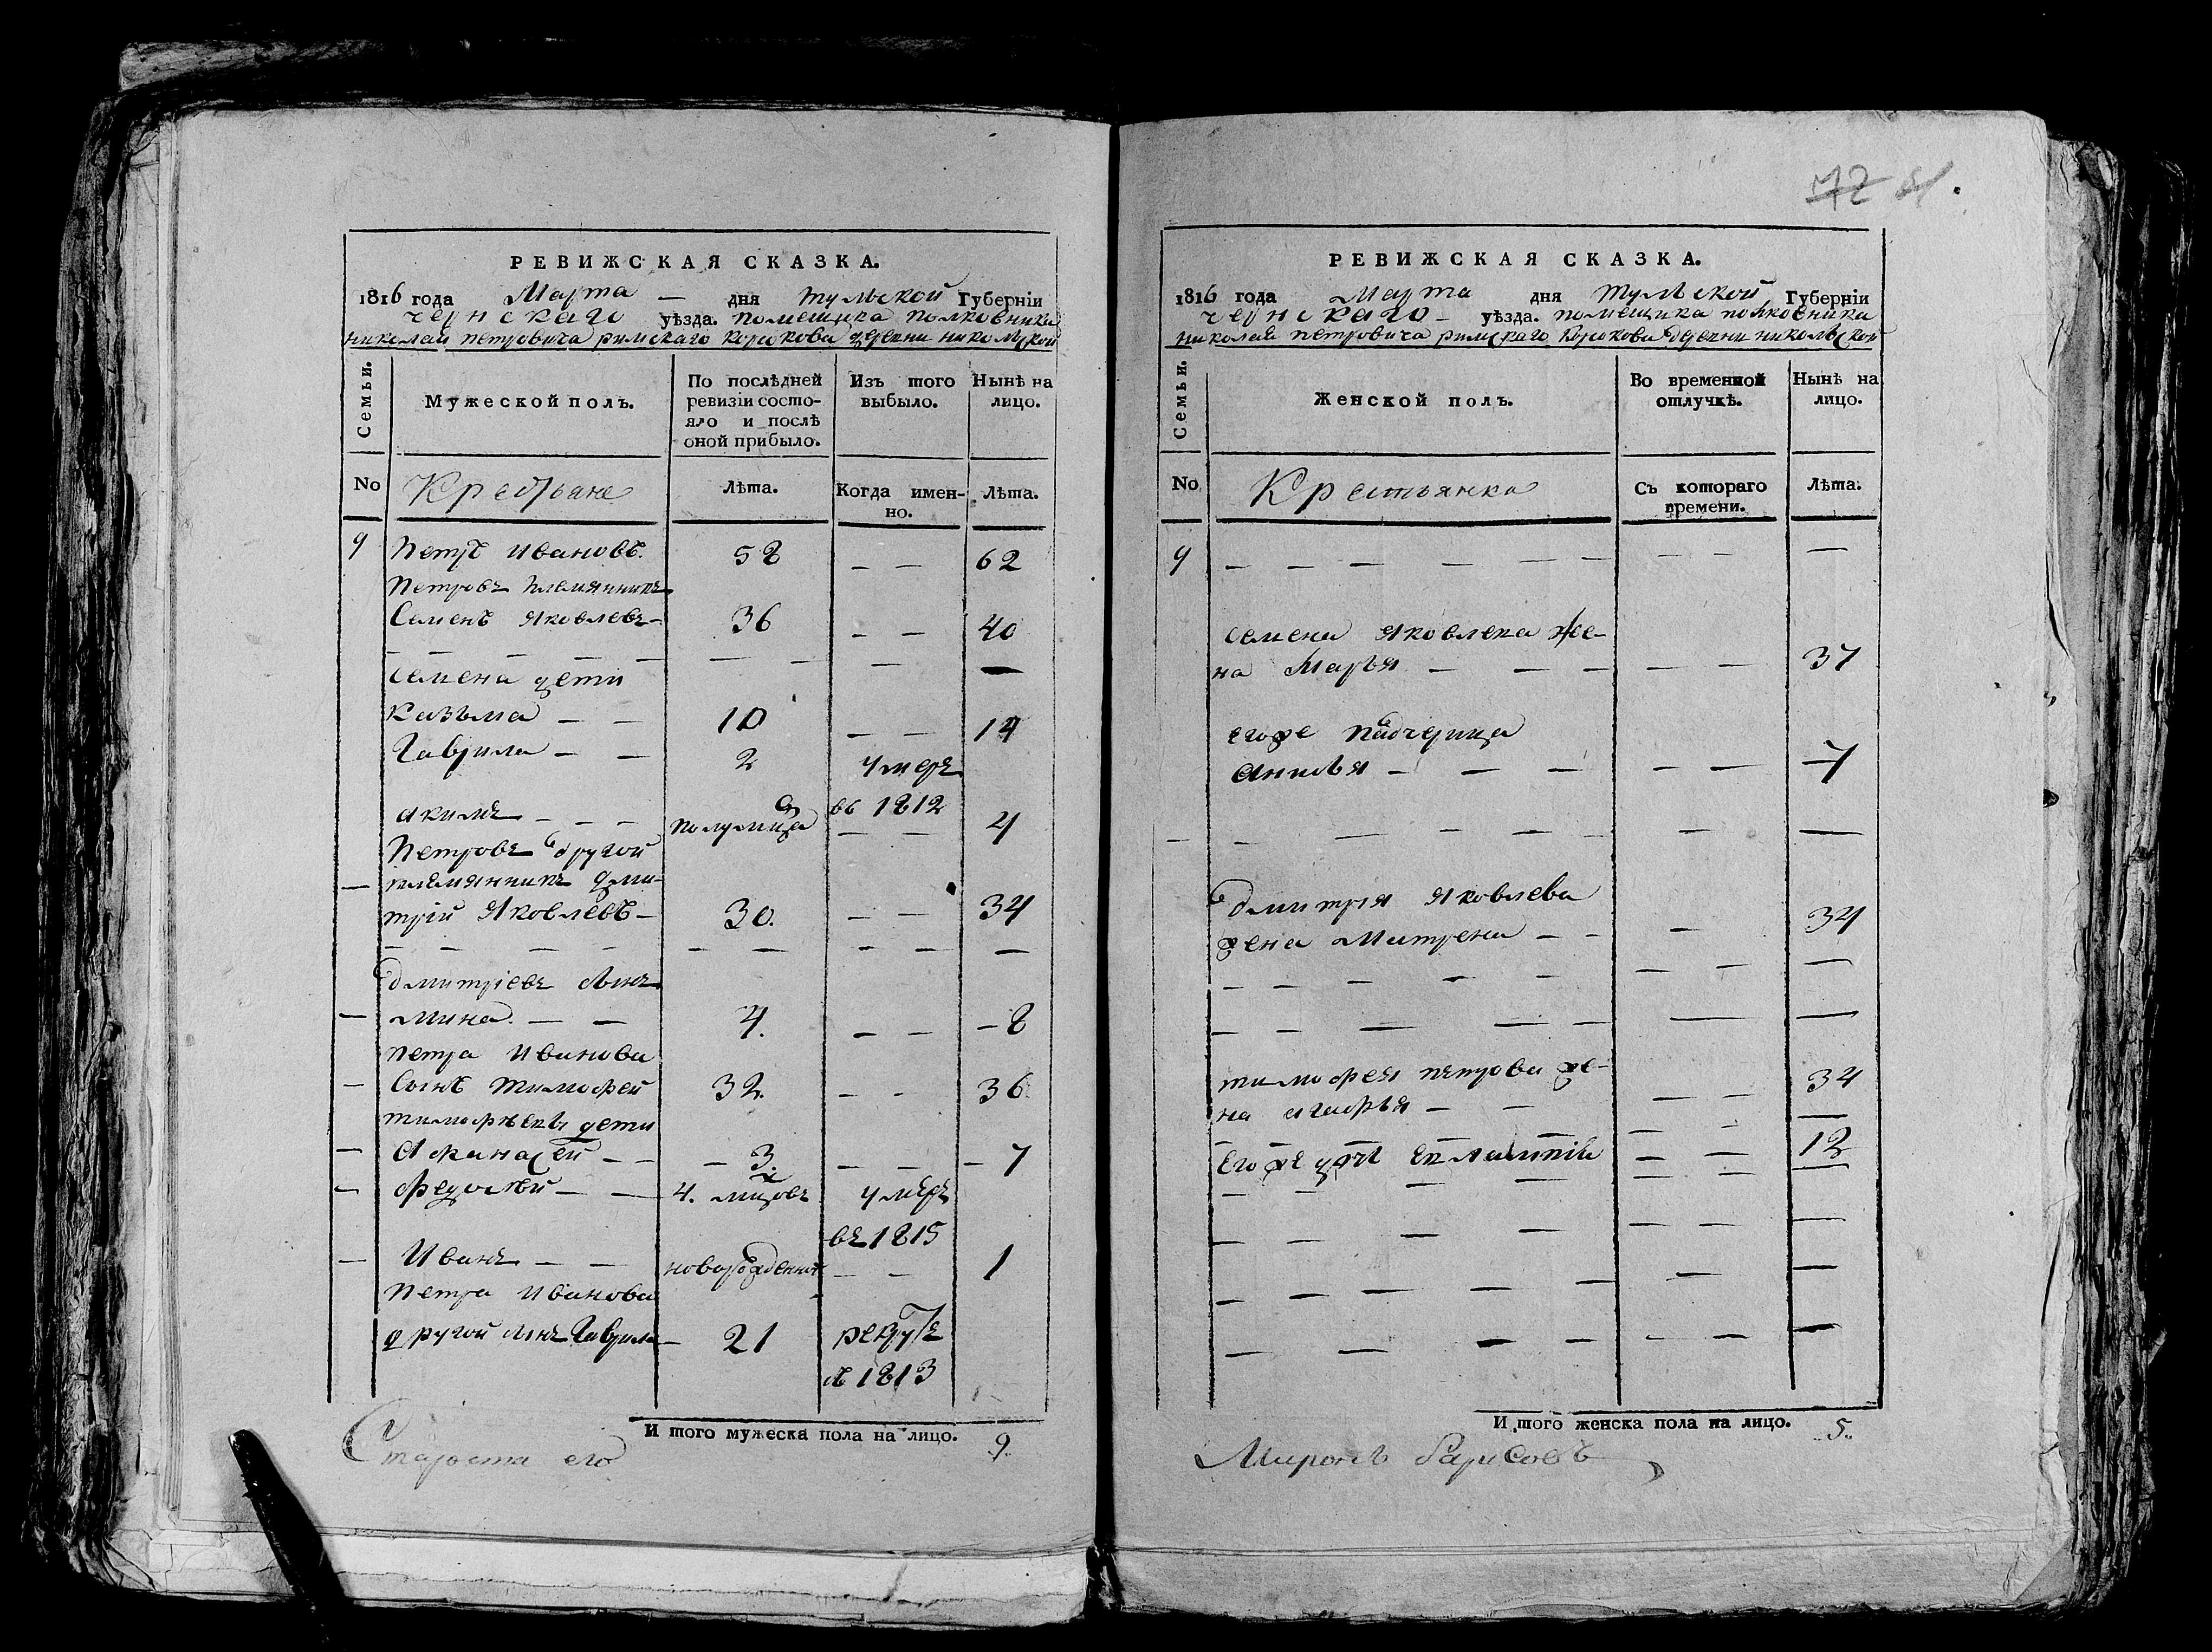 РЕВИЖСКАЯ СКАЗКА.
1816 года Марта — дня тульской Губернїи
чернскаго уѣзда. помещика полковника
николая петровича римскаго корсакова деревни никольской
Семьи.
Мужеской полъ.
По послѣдней ревизїи состояло и послѣ оной прибыло.
Изъ того выбыло.
Нынѣ на лицо.
No
Крестьяне
Лѣта.
Когда именно.
Лѣта.
9 Петръ Ивановъ. 58 — — 62
Петровъ племянникъ
Семенъ Яковлевъ — 36 — — 40
— — — — — — — — —
семена дети
Казьма — — 10 — — 14
Гаврила — — 2 умеръ
въ 1812
акимъ — — — полумица — — 4
Петровъ другой
— племянникъ дми-
трій Яковлевъ — 30. — — 34
— — — — — — — — —
дмитріевъ сынъ
— мина. — — 4. — — — 8
петра Иванова
— сынъ тимофей 32. — — 36
тимофѣевы дети
— Афанасей — — — 3. — — — 7
— федосѣй — — 4. мицовъ умѣръ
въ 1815
— Иванъ — — новорожденной — — 1
Петра Иванова
другой сынъ Гаврила — 21 рекрутъ
въ 1813
И того мужеска пола на лицо. 9.
Староста его
72 81.
РЕВИЖСКАЯ СКАЗКА.
1816 года Марта дня тульской Губернїи
чернскаго — уѣзда. помещика полковника
николая петровича римскаго корсакова деревни никольской
Семьи.
Женской полъ.
Во временной отлучкѣ.
Нынѣ на лицо.
No
Крестьянка
Съ котораго времени.
Лѣта.
9 — — — — — — — — —
семена Яковлева же-
на Марья — — — — — 37
егоже падчерица
Анисья — — — — — 7
— — — — — — — —
дмитрія яковлева
жена Матрена — — — 34
— — — — — — — —
— — — — — — — —
тимофея петрова же-
на агафья — — — — 34
Егоже дочь Евлампія — — 12
— — — — — — —
— — — — — — —
— — — — — — —
— — — — — — —
И того женска пола на лицо. 5.
Миронъ барисовъ